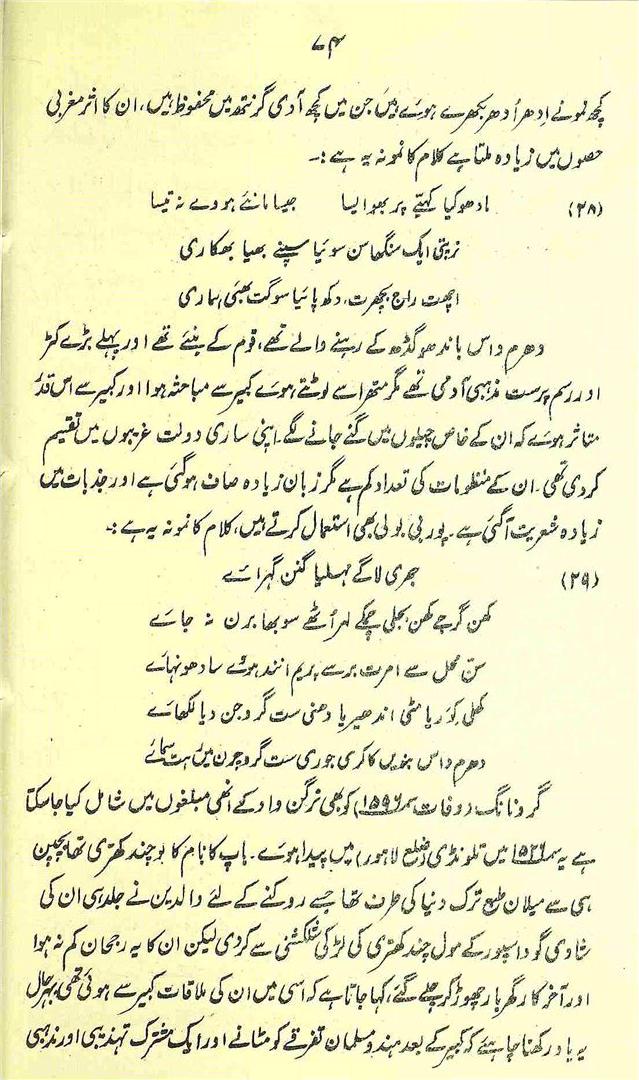 ۷۴
کچھ نمونے اِدھر اُدھر بکھرے ہوئے ہیں جن میں کچھ آدی گرنتھ میں محفوظ ہیں، ان کا اثر مغربی
حصوں میں زیادہ ملتا ہے کلام کا نمونہ یہ ہے :۔
(۲۸) مادھو کیا کہئے پربھو ایسا جیسا مانئے ہووے نہ تیسا
نرپتی ایک سنگھاسن سوئیا سپنے بھیا بھکاری
اچھت راج بچھرت، دکھ پائیا سوگت بھئی ہماری
دھرم داس باندھو گڈھ کے رہنے والے تھے، قوم کے بنئے تھے اور پہلے بڑے کٹر
اور رسم پرست مذہبی آدمی تھے مگر متھرا سے لوٹتے ہوئے کبیر سے مباحثہ ہوا اور کبیر سے اس قدر
متاثر ہوئے کہ ان کے خاص چیلوں میں گنے جانے لگے۔ اپنی ساری دولت غریبوں میں تقسیم
کر دی تھی۔ ان کے منظومات کی تعداد کم ہے مگر زبان زیادہ صاف ہوگئی ہے اور جذبات میں
زیادہ شعریت آگئی ہے۔ پوربی بولی بھی استعمال کرتے ہیں، کلام کا نمونہ یہ ہے :۔
(۲۹) جھری لاگے مہلیا گگن گہرائے
کھن گرجے کھن بجلی چمکے لہر اُٹھے سوبھا برن نہ جائے
سن محل سے امرت برسے پریم انند ہوئے سادھو نہائے
کھلی کوریا مٹی اندھیریا دھنی ست گرو جن دیا لکھائے
دھرم داس بنویں کاکری جوری ست گرو چرن میں رہت سمائے
گرونانک (وفات سمہ ۱۵۹۶) کو بھی نرگن واد کے انھی مبلغوں میں شامل کیا جا سکتا
ہے یہ سمہ ۱۵۲۶ میں تلونڈی (ضلع لاہور) میں پیدا ہوئے۔ باپ کا نام کالو چند کھتری تھا بچپن
ہی سے میلان طبع ترک دنیا کی طرف تھا جسے روکنے کے لئے والدین نے جلد ہی ان کی
شادی گورداسپور کے مول چند کھتری کی لڑکی سلکشنی سے کردی لیکن ان کا یہ رجحان کم نہ ہوا
اور آخر کار گھر بار چھوڑ کر چلے گئے، کہا جاتا ہے کہ اسی میں ان کی ملاقات کبیر سے ہوئی تھی، بہرحال
یہ یاد رکھنا چاہیئے کہ کبیر کے بعد ہندو مسلمان تفرقے کو مٹانے اور ایک مشترک تہذیبی اور مذہبی